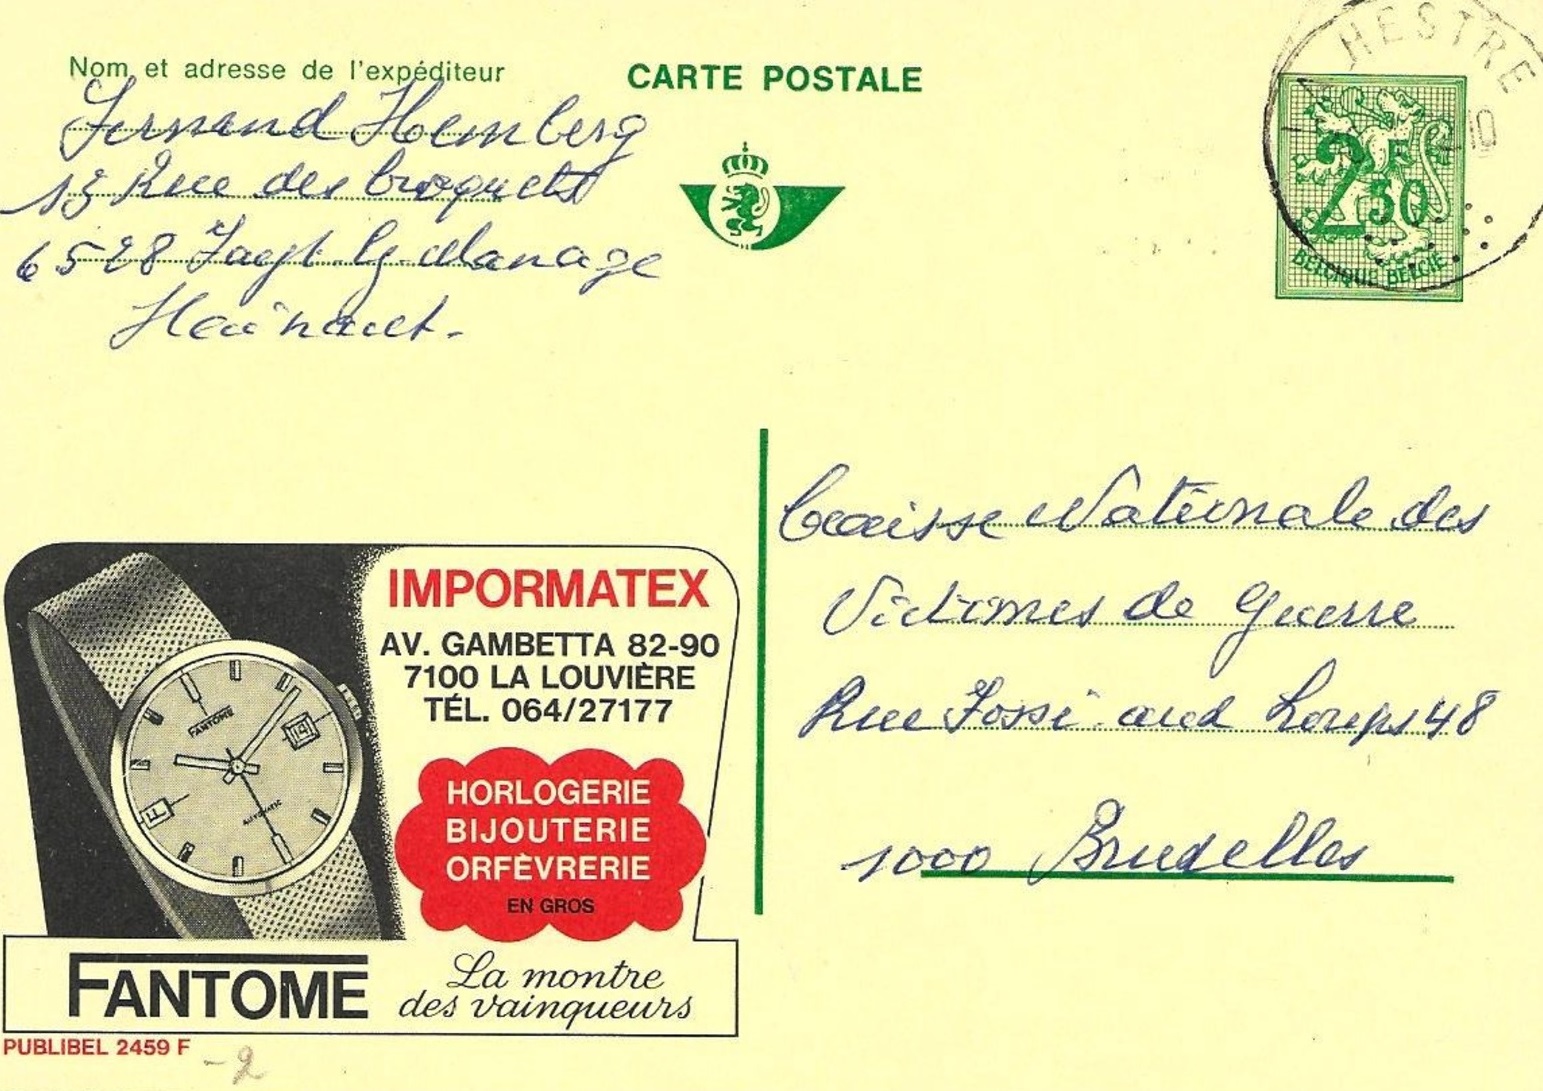 Nom et adresse de l'expéditeur
CARTE POSTALE
HESTRE
10
Fernand Hemberg
13 Rue des
6528 Manage
Hainaut.
2F50
BELGIQUE BELGIË
Caisse Nationale des
Victimes de Guerre
Rue Fossé aux Loups 48
1000 Bruxelles
IMPORMATEX
AV. GAMBETTA 82-90
7100 LA LOUVIÈRE
TÉL. 064/27177
FANTOME
14
AUTOMATIC
HORLOGERIE
BIJOUTERIE
ORFÈVRERIE
EN GROS
FANTOME
La montre
des vainqueurs
PUBLIBEL 2459 F
-2